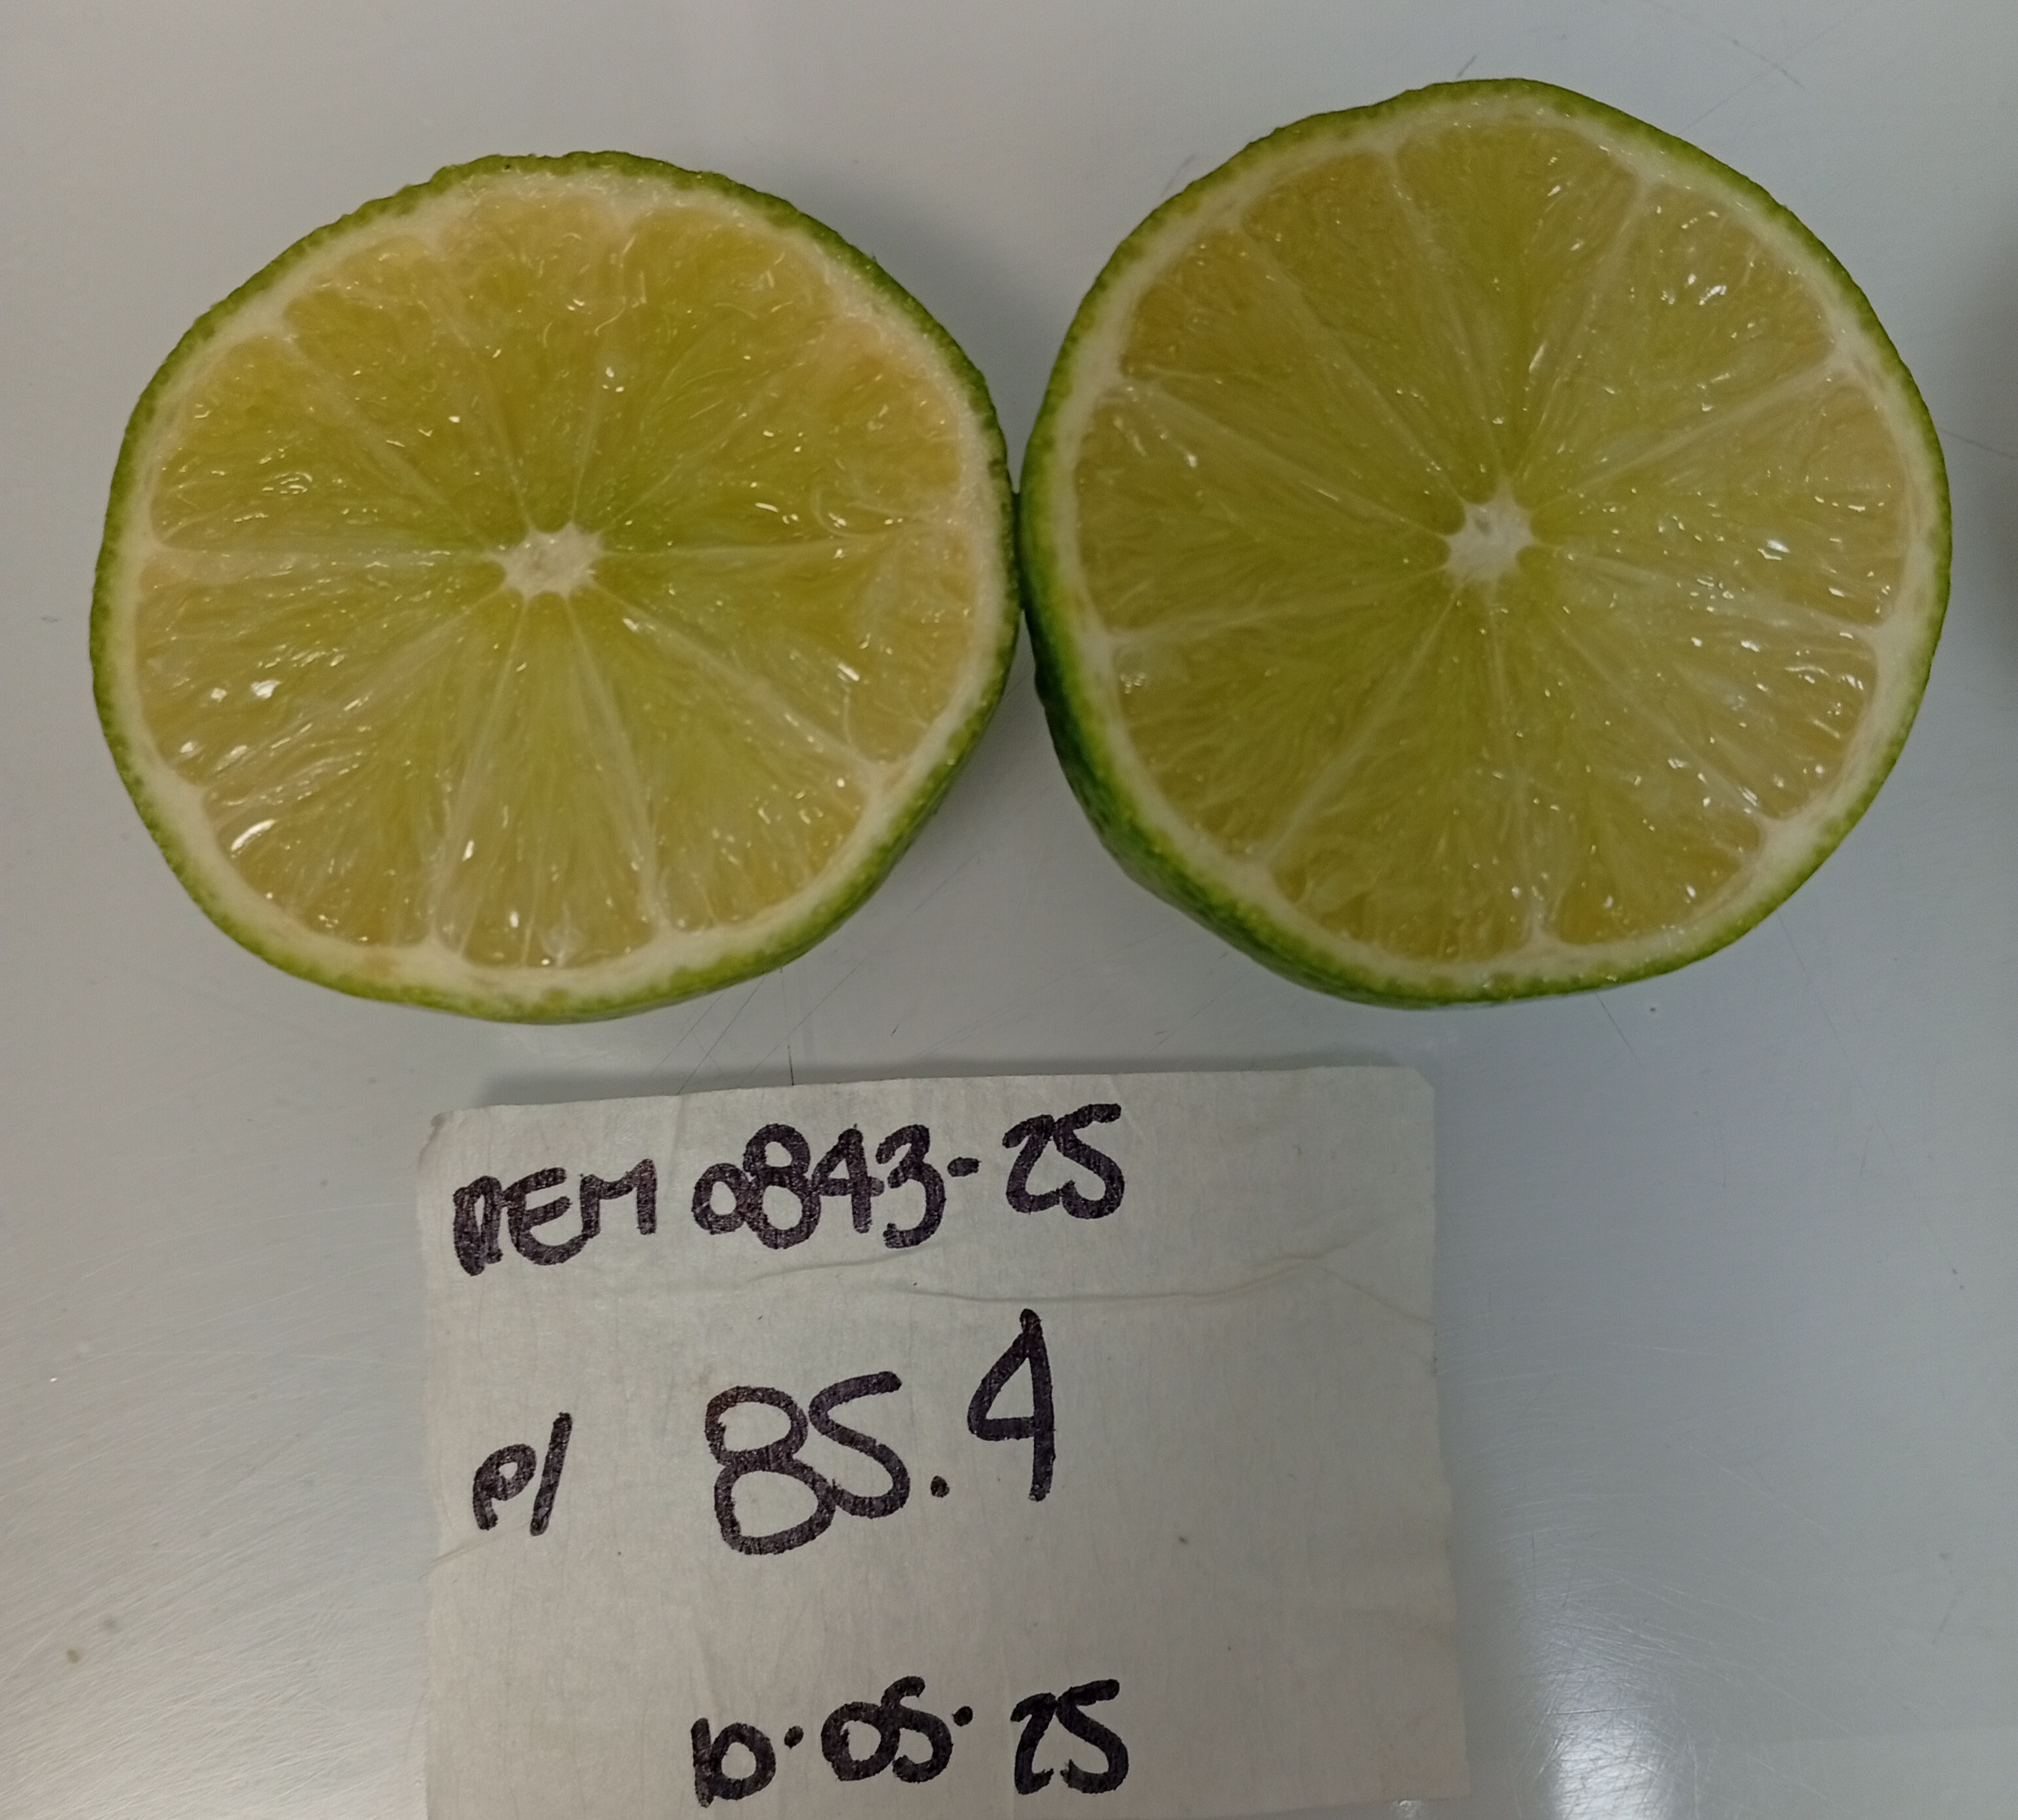 REM 0843-25
P/ 85.4
10.05.25